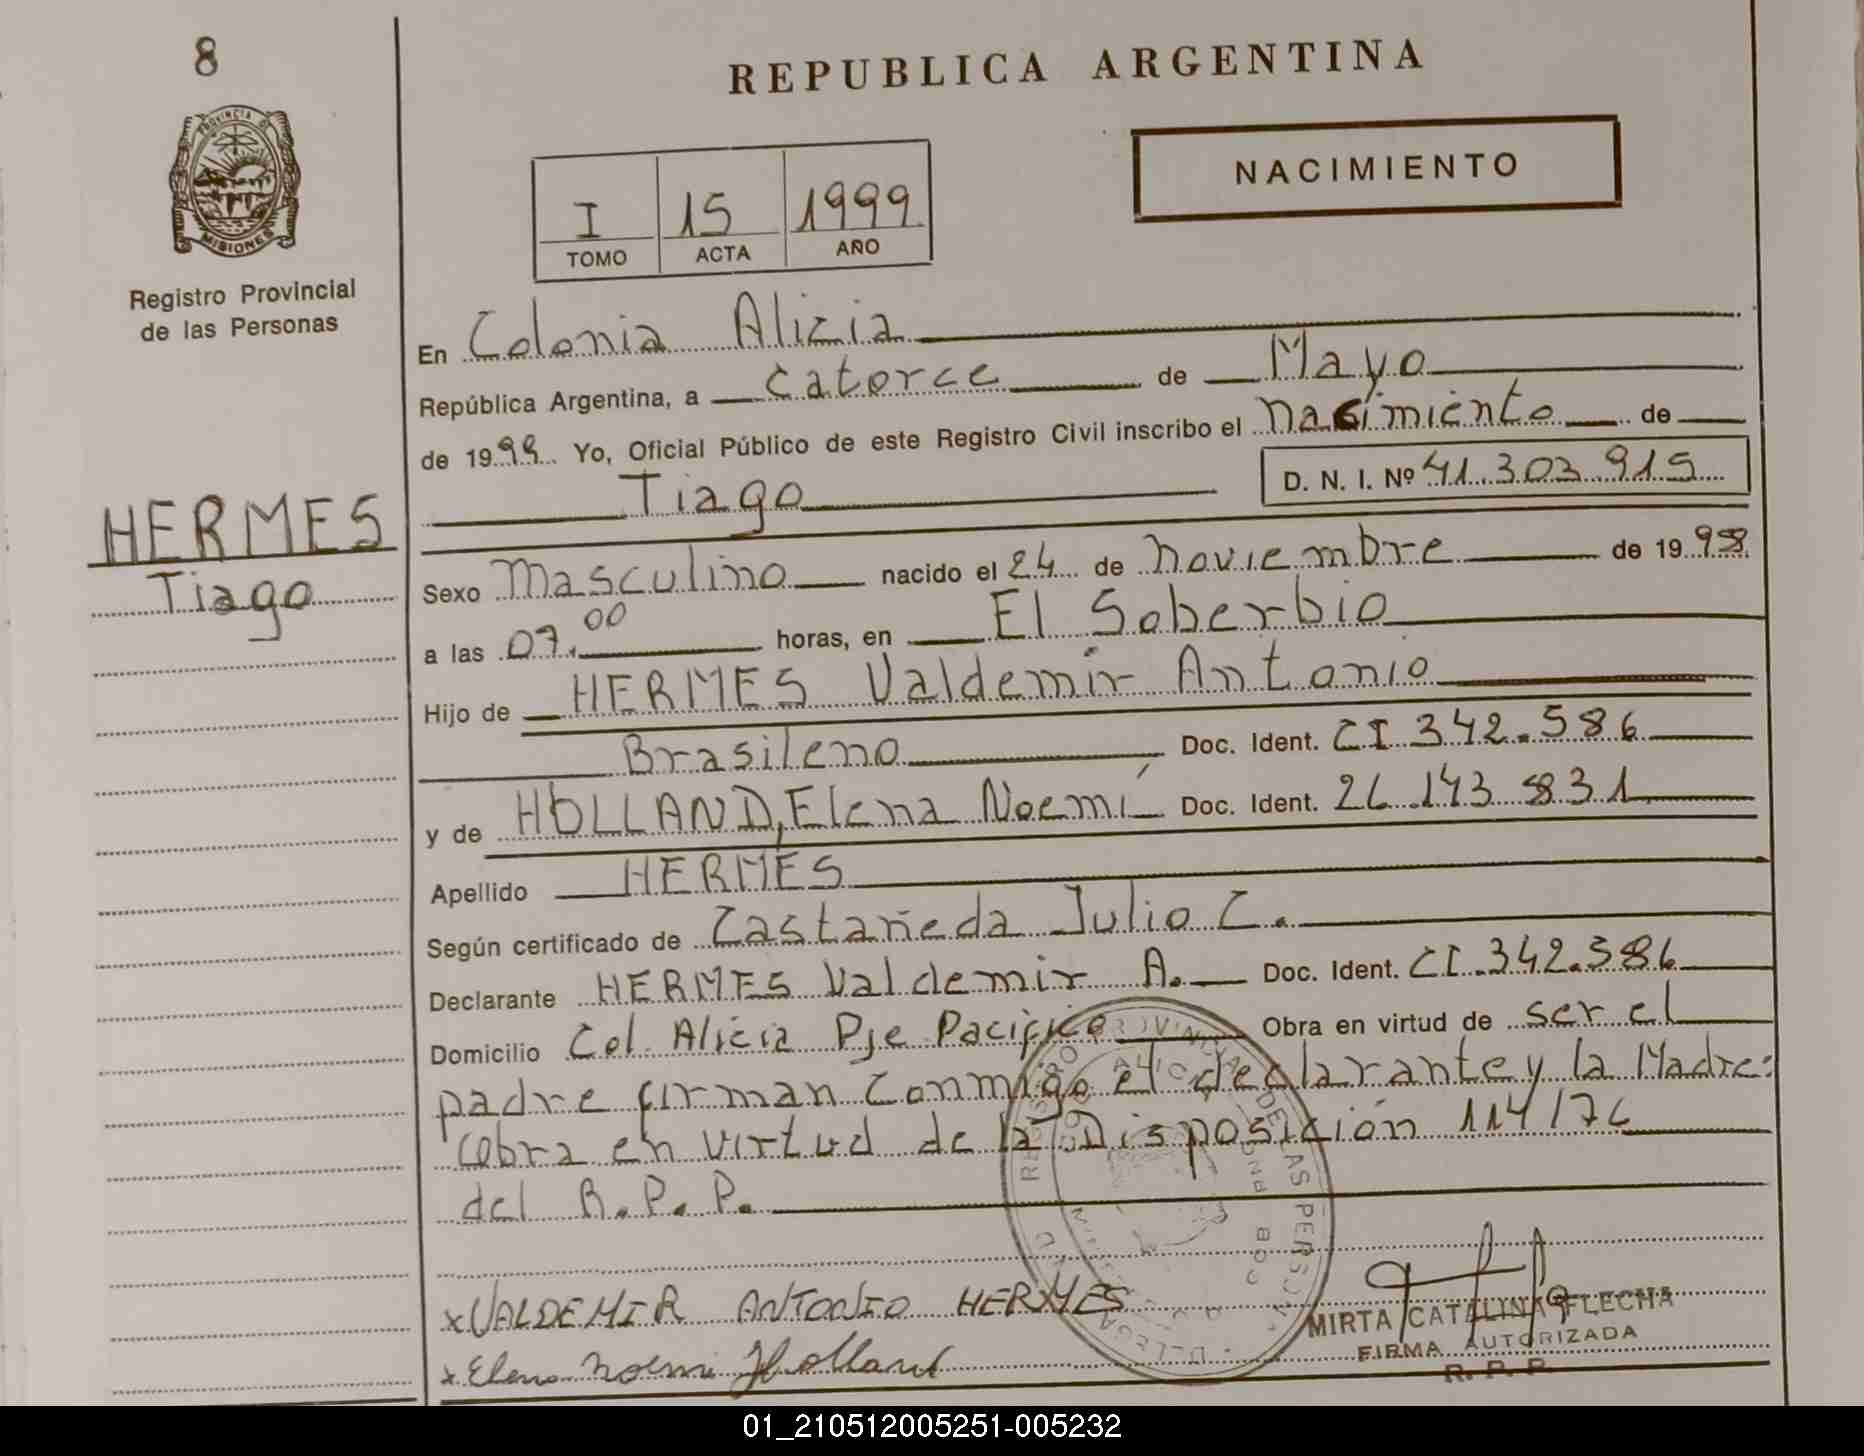 8
REPUBLICA ARGENTINA
PROVINCIA DE
MISIONES
NACIMIENTO
I 15 1999
TOMO ACTA AÑO
Registro Provincial
de las Personas
En Colonia Alicia
República Argentina, a catorce de Mayo
de 1999 Yo, Oficial Público de este Registro Civil inscribo el nacimiento de
Tiago D. N. I. Nº 41.303.915
HERMES
Tiago
Sexo Masculino nacido el 24 de noviembre de 1998
a las 07.00 horas, en El Soberbio
Hijo de HERMES Valdemir Antonio
Brasileno Doc. Ident. CI 342.586
y de HOLLAND, Elena Noemí Doc. Ident. 26.143 831
Apellido HERMES
Según certificado de Castañeda Julio C.
Declarante HERMES Valdemir A. Doc. Ident. CI.342.586
Domicilio Col. Alicia Pje Pacifico Obra en virtud de ser el
padre firman conmigo el declarante y la Madre:
Cobra en virtud de la Disposición 114/76
del R.P.P.
x VALDEMIR ANTONIO HERMES
x Elena Noemi Holland
MIRTA CATALINA FLECHA
FIRMA AUTORIZADA
R. P. P.
01_210512005251-005232